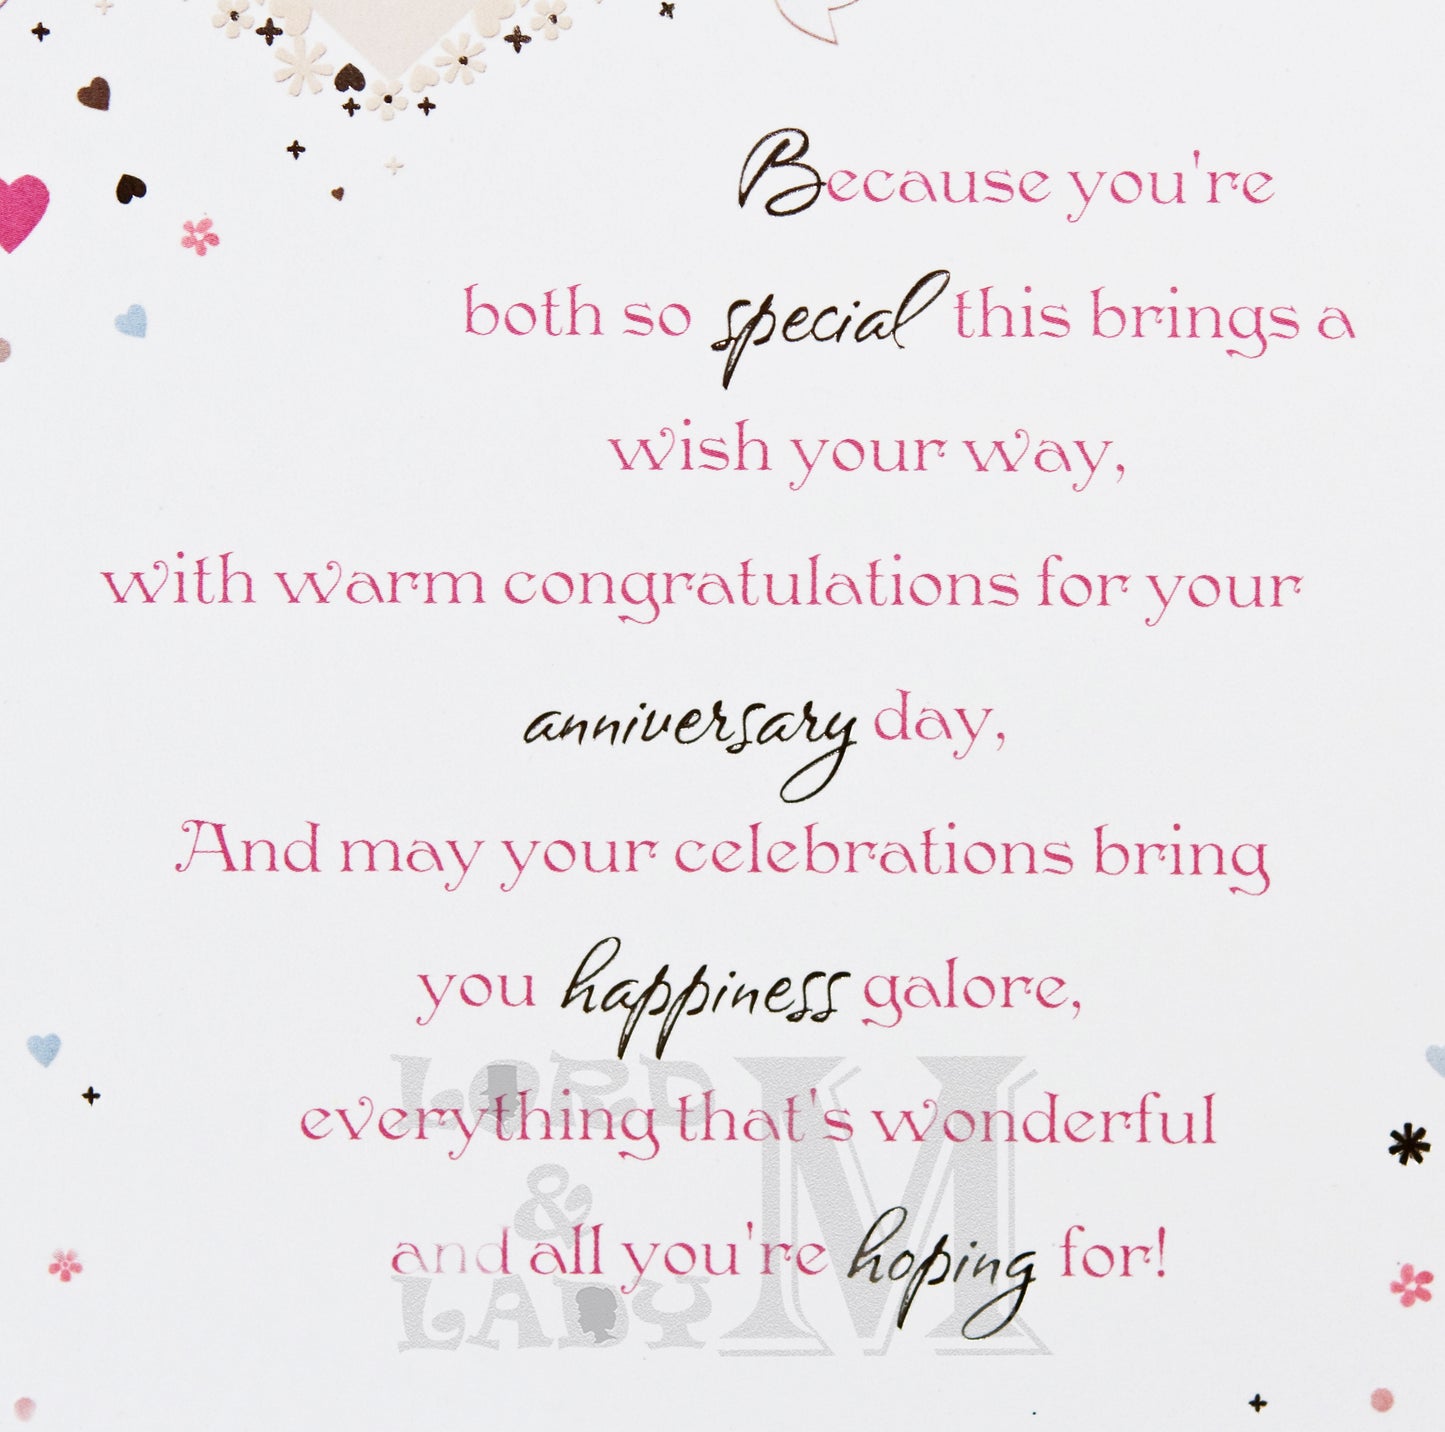 Because you're
both so special this brings a
wish your way,
with warm congratulations for your
anniversary day,
And may your celebrations bring
you happiness galore,
everything that's wonderful
and all you're hoping for!
LORD
&
LADY
M